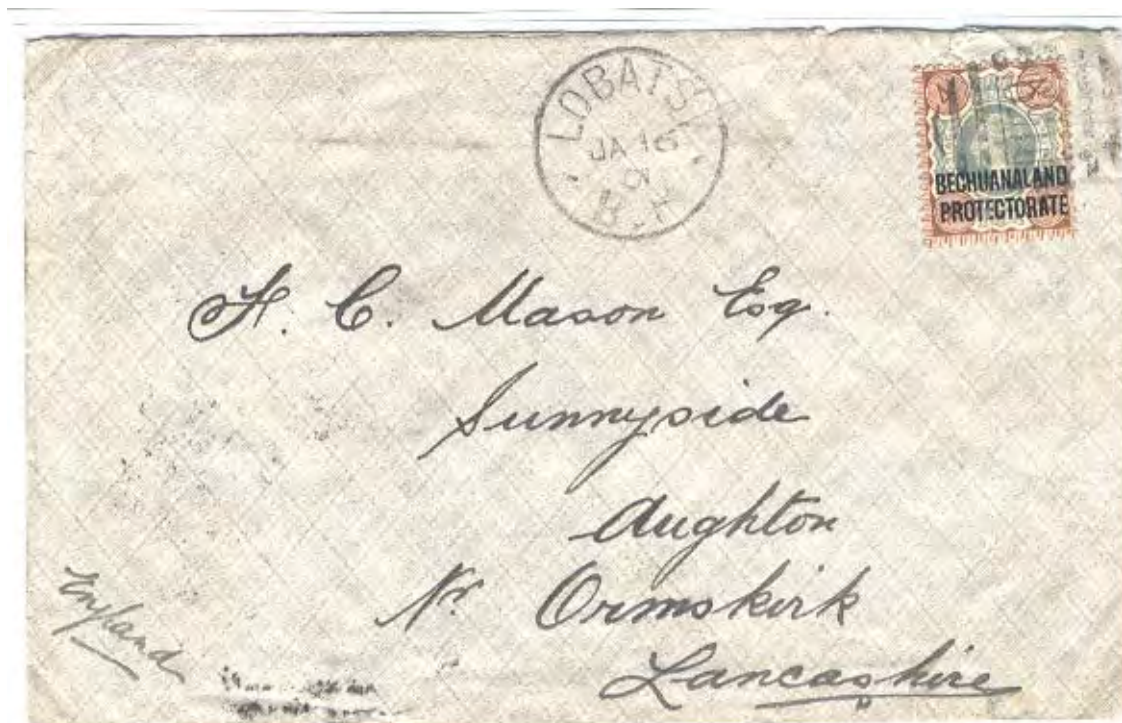 LOBATSI
JA 16
01
BECHUANALAND
PROTECTORATE
H. C. Mason Esq.
Sunnyside
Aughton
Nr. Ormskirk
Lancashire
England